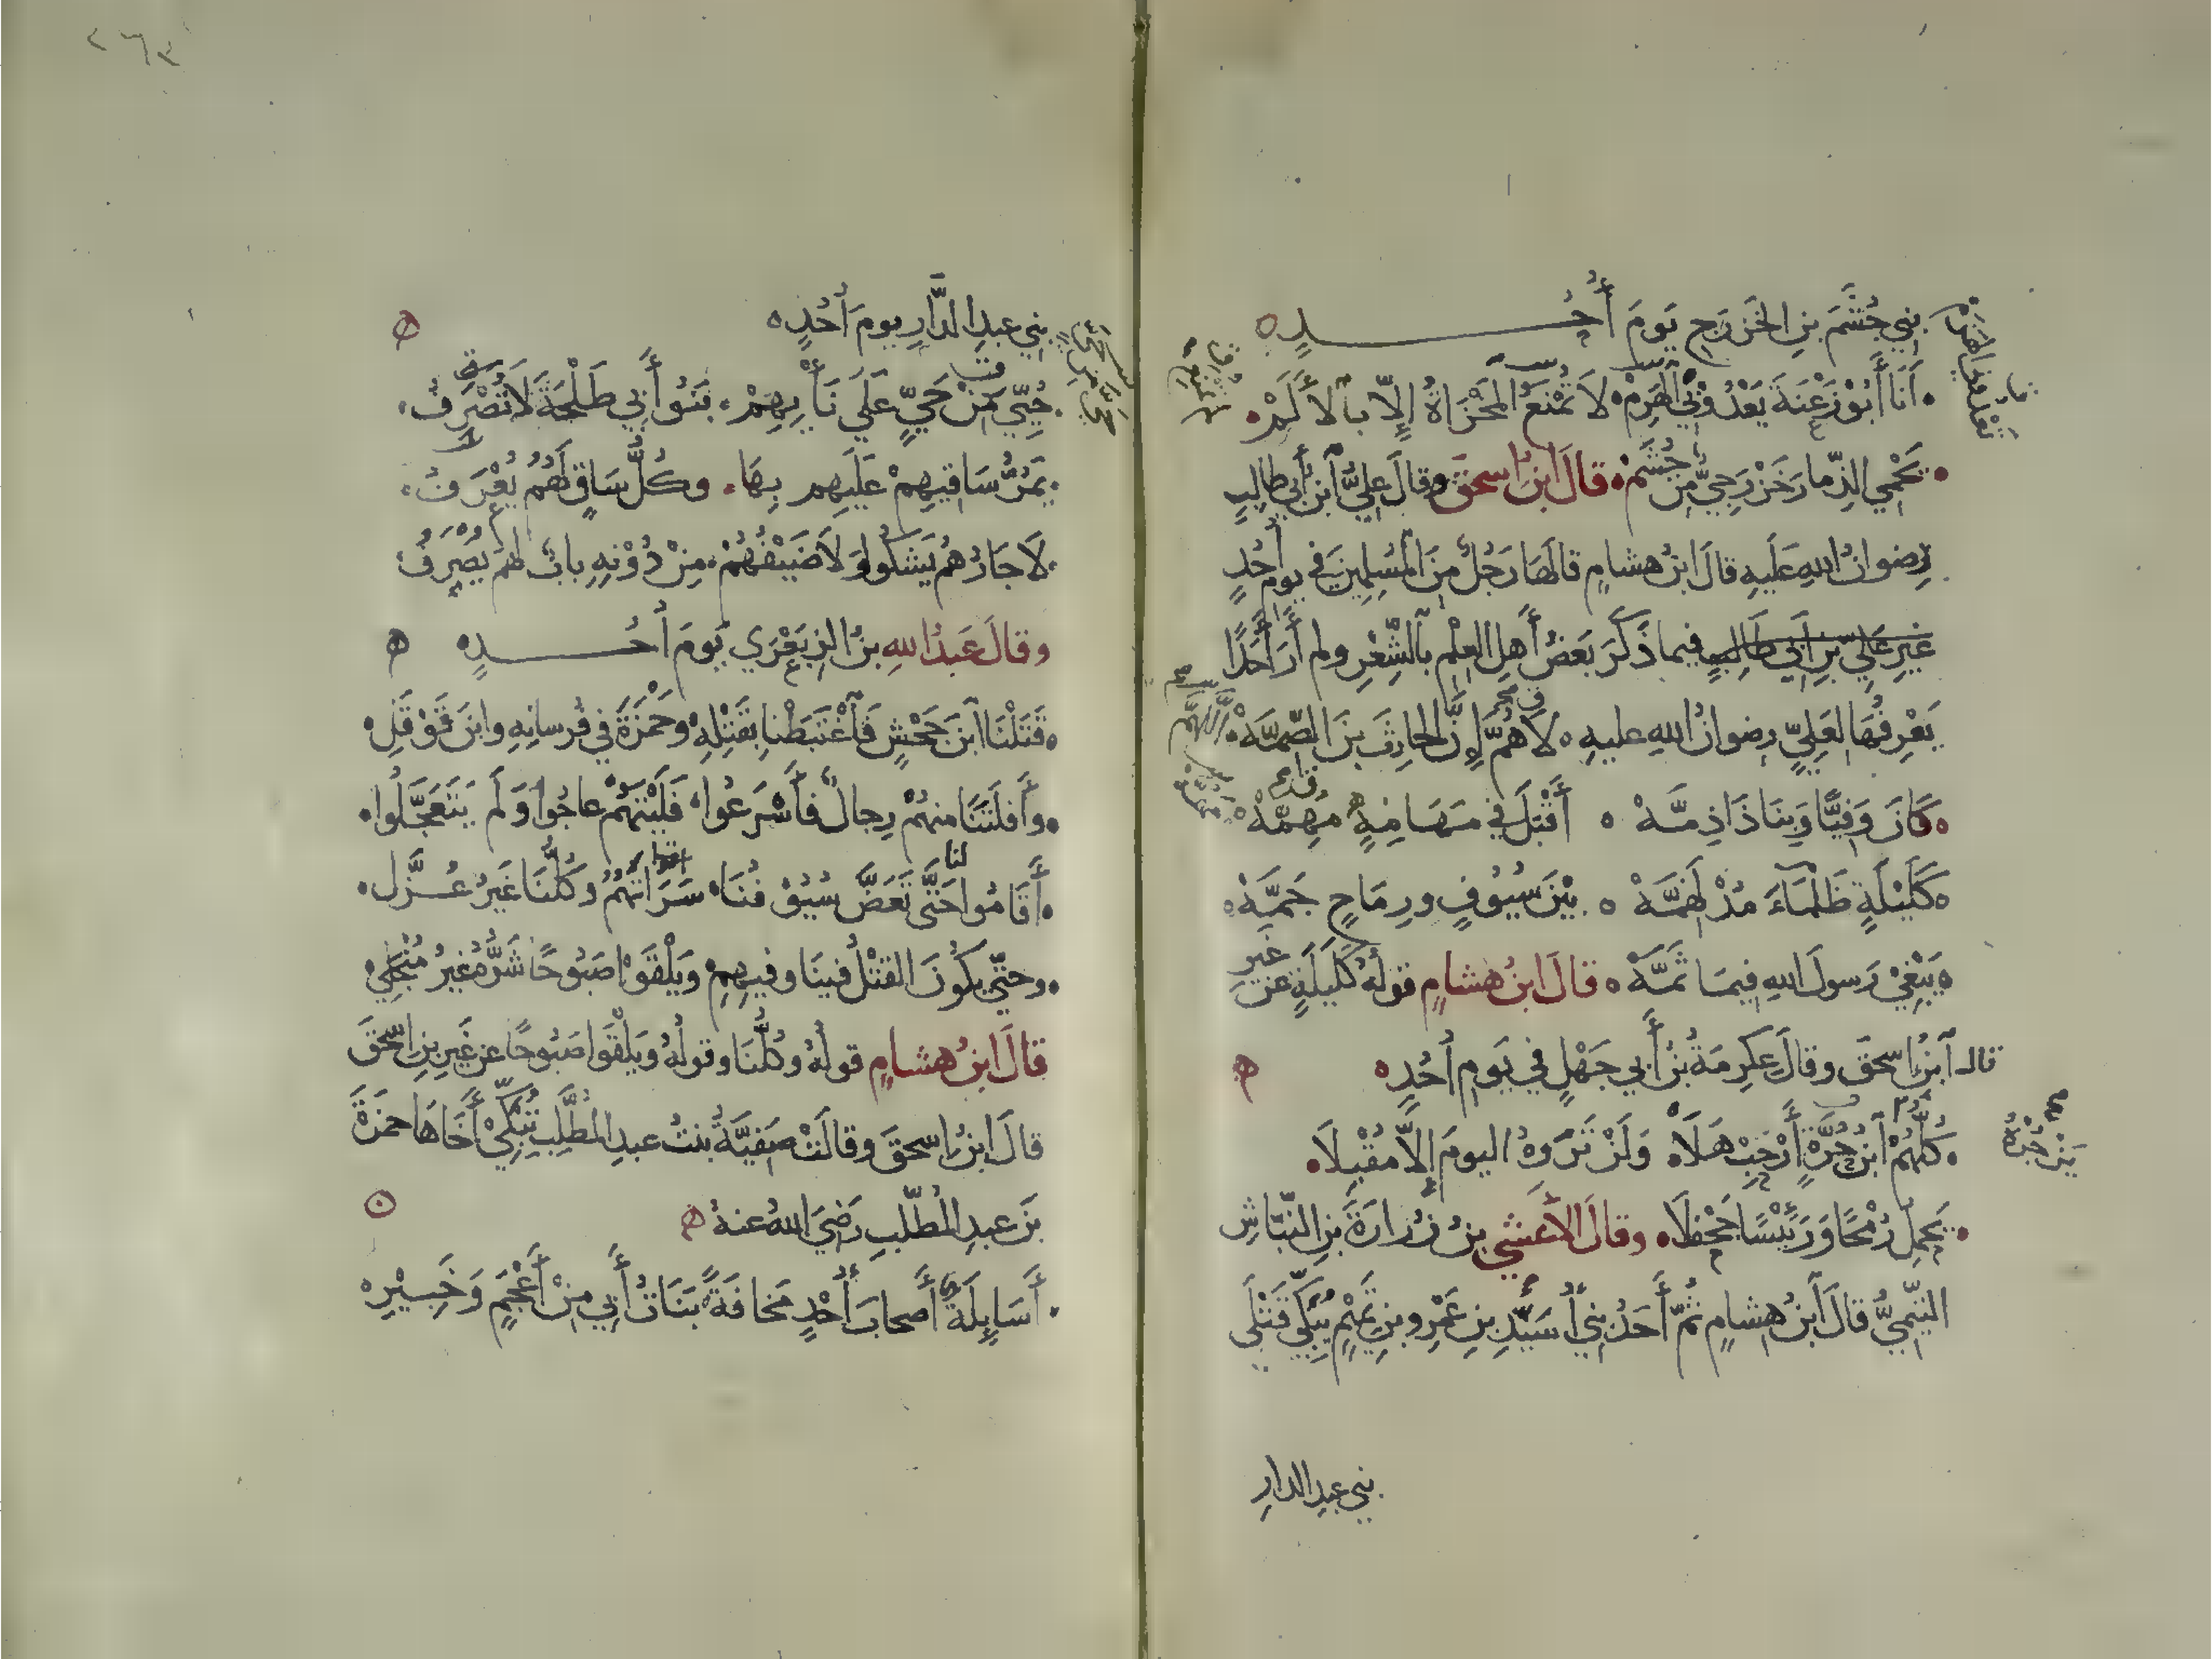 بني جُشَمَ بنِ الخَزرَجِ يَومَ أُحُدٍ
أَنَا أَبُوْ زَعْنَةَ يَعْدُوْ بِي الهَزِمْ لَا تُمْنَعُ المَخْزَاةُ إِلّا بالأَلَمْ
يَحْمِي الذِّمارَ خَزْرَجِيٌّ مِن جُشَمْ قالَ ابنُ اسحقَ وقالَ عليُّ ابنُ أبي طالبٍ
رِضوانُ اللهِ عَلَيهِ قالَ ابنُ هشامٍ قالَهَا رَجُلٌ مِنَ المُسلِمِينَ في يومِ أُحُدٍ
غيرِ عَلِيّ بنِ أَبي طَالِبٍ فيما ذَكَرَ بَعضُ أَهلِ العِلْمِ بالشِّعْرِ ولم أَرَ أَحَدًا
يَعْرِفُهَا لعَلِيٍّ رضوانُ اللهِ عليهِ لَاهُمَّ إِنَّ الحارِثَ بنَ الصِّمَّهْ
كَانَ وَفِيًّا وَبِنَا ذَا ذِمَّهْ أَقْبَلَ في مَهَامِهٍ مُهِمَّهْ
كَلَيْلَةٍ ظَلْمَاءَ مُدْلَهِمَّهْ بَيْنَ سُيُوفٍ ورِمَاحٍ جَمَّهْ
يَبْغِيْ رَسولَ اللهِ فِيمَا ثَمَّهْ قالَ ابنُ هشامٍ قولُهُ كَلَيلَةٍ عن غيرِ
قال ابنُ اسحقَ وقالَ عِكرِمَةُ بنُ أَبي جَهْلٍ في يَومِ أُحُدٍ
كُلُّهُمْ ابنُ حُرَّةٍ أَرْحِبْ هَلَا وَلَنْ تَرَوهُ اليومَ إِلَّا مُقْبِلَا
يَحمِلُ رُمْحًا وَرَئِيْسًا جَحْفَلَا وقالَ الأَعشي بنُ زُرارَةَ بنِ النَّبّاشِ
التَّمِيمِيُّ قالَ ابنُ هشامٍ ثُمَّ أَحَدُ بنِي أُسَيِّدِ بنِ عَمْرِو بنِ تَمِيْمٍ يُبَكِّي قَتْلَى
بني عبدِ الدارِ
بني عبدِ الدَّارِ يومَ أُحُدٍ
حُيِّيَ مِنْ حَيٍّ عَلَي نَأْيِهِمْ بَنُوْ أَبِي طَلْحَةَ لَا تُصْرَفُ
يَمُرُّ سَاقِيهِمْ عَلَيهِم بِهَا وكُلُّ سَاقٍ لَهُمُ يُعْرَفُ
لَا جَارُهُم يَشكُو وَلَا ضَيْفُهُمْ مِنْ دُوْنِهِ بابٌ لهم يُصْرَفُ
وقالَ عَبدُ اللهِ بنُ الزِبَعْرَي يَومَ أُحُدٍ
قَتَلْنَا ابنَ جَحْشٍ فَاغْتَبَطْنا بِقَتْلِهِ وَحَمْزَةَ في فُرسانِهِ وابنَ قَوْقَلِ
وأَفلَتَنَا منهُمْ رِجالٌ فأَسْرَعُوا فَلَيْتَهُمْ عاجُوا وَلَم يَتَعَجَّلُوا
أَقَامُوا لنا حَتَّى تَعَضَّ سُيُوْفُنَا سَرَاتَهُمُ وكُلُّنَا غَيرُ عُزَّلِ
وحتّي يكُونَ القَتْلُ فينَا وفيهِمِ وَيَلْقَوْا صَبُوحًا شَرُّهُ غيرُ مُنْجَلِيْ
قالَ ابنُ هشامٍ قولُهُ وكُلُّنَا وقولُهُ ويَلْقَوا صَبُوحًا عن غَيرِ بنِ اسّحقَ
قالَ ابنُ اسحقَ وقالَتْ صَفِيَّةُ بنتُ عبدِ المُطَّلِبِ تُبَكِّيْ أَخَاهَا حمزَةَ
بنَ عبدِ المُطَّلبِ رَضِيَ اللهُ عنهُ
أَسَايِلَةً أَصحابَ أُحْدٍ مَخافَةً بَنَاتُ أَبِي مِنْ أَعْجَمٍ وَخَبِيْرِ